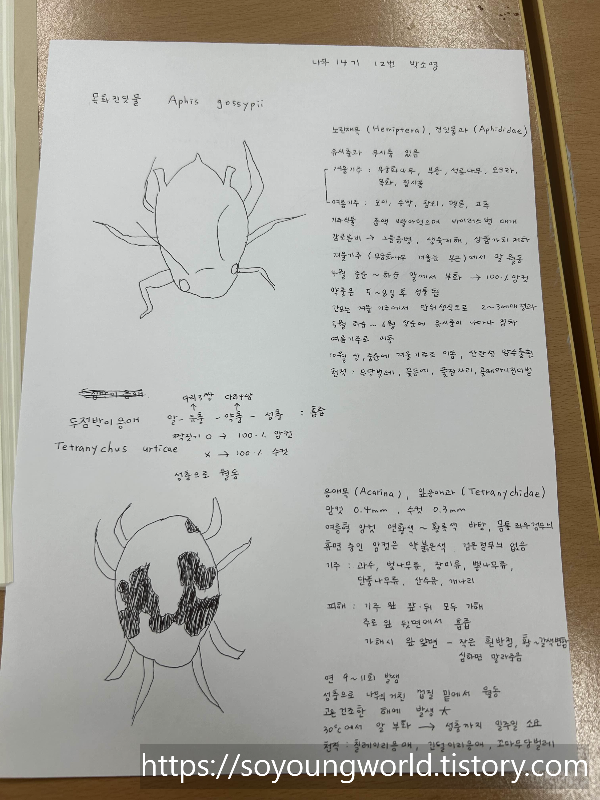 나무 14기 12번 박소영
목화진딧물 Aphis gossypii
노린재목 (Hemiptera), 진딧물과 (Aphididae)
유시충과 무시충 있음
겨울기주 : 무궁화나무, 부용, 석류나무, 오크라,
목화, 접시꽃
여름기주 : 오이, 수박, 참외, 멜론, 고추
기주식물 즙액 빨아먹으며 바이러스병 매개
감로분비 → 그을음병, 생육저해, 상품가치 저하
겨울기주 (무궁화나무 겨울눈 부근)에서 알 월동
4월 중순 ~ 하순 알에서 부화 → 100% 암컷
약충은 성충 됨
간모는 겨울 기주에서 단위생식으로 2~3세대 경과
5월 하순 ~ 6월 상순에 유시충이 나타나 점차
여름기주로 이동
10월 상, 중순에 겨울기주로 이동, 산란성 암수출현
천적 : 무당벌레, 꽃등에, 풀잠자리,
다리 3쌍 다리 4쌍
두점박이응애 알 - 유충 - 약충 - 성충 : 흡습
짝짓기 O → 100% 암컷
Tetranychus urticae X → 100% 수컷
성충으로 월동
응애목 (Acarina), 잎응애과 (Tetranychidae)
암컷 0.4mm, 수컷 0.3mm
여름형 암컷 연황색 ~ 황록색 바탕, 몸통 좌우 검무늬
휴면 중인 암컷은 약붉은색 검은점무늬 없음
기주 : 과수, 벚나무류, 장미류, 뽕나무류,
단풍나무류, 산수유, 개나리
피해 : 기주 잎 앞·뒤 모두 가해
주로 잎 뒷면에서 흡즙
가해시 잎 앞면 - 작은 흰반점, 황~갈색변함
심하면 말라죽음
연 9~11회 발생
성충으로 나무의 거친 껍질 밑에서 월동
고온건조한 해에 발생 ★
30℃에서 알 부화 → 성충까지 일주일 소요
천적 : 칠레이리응애, 긴털이리응애, 꼬마무당벌레
https://soyoungworld.tistory.com